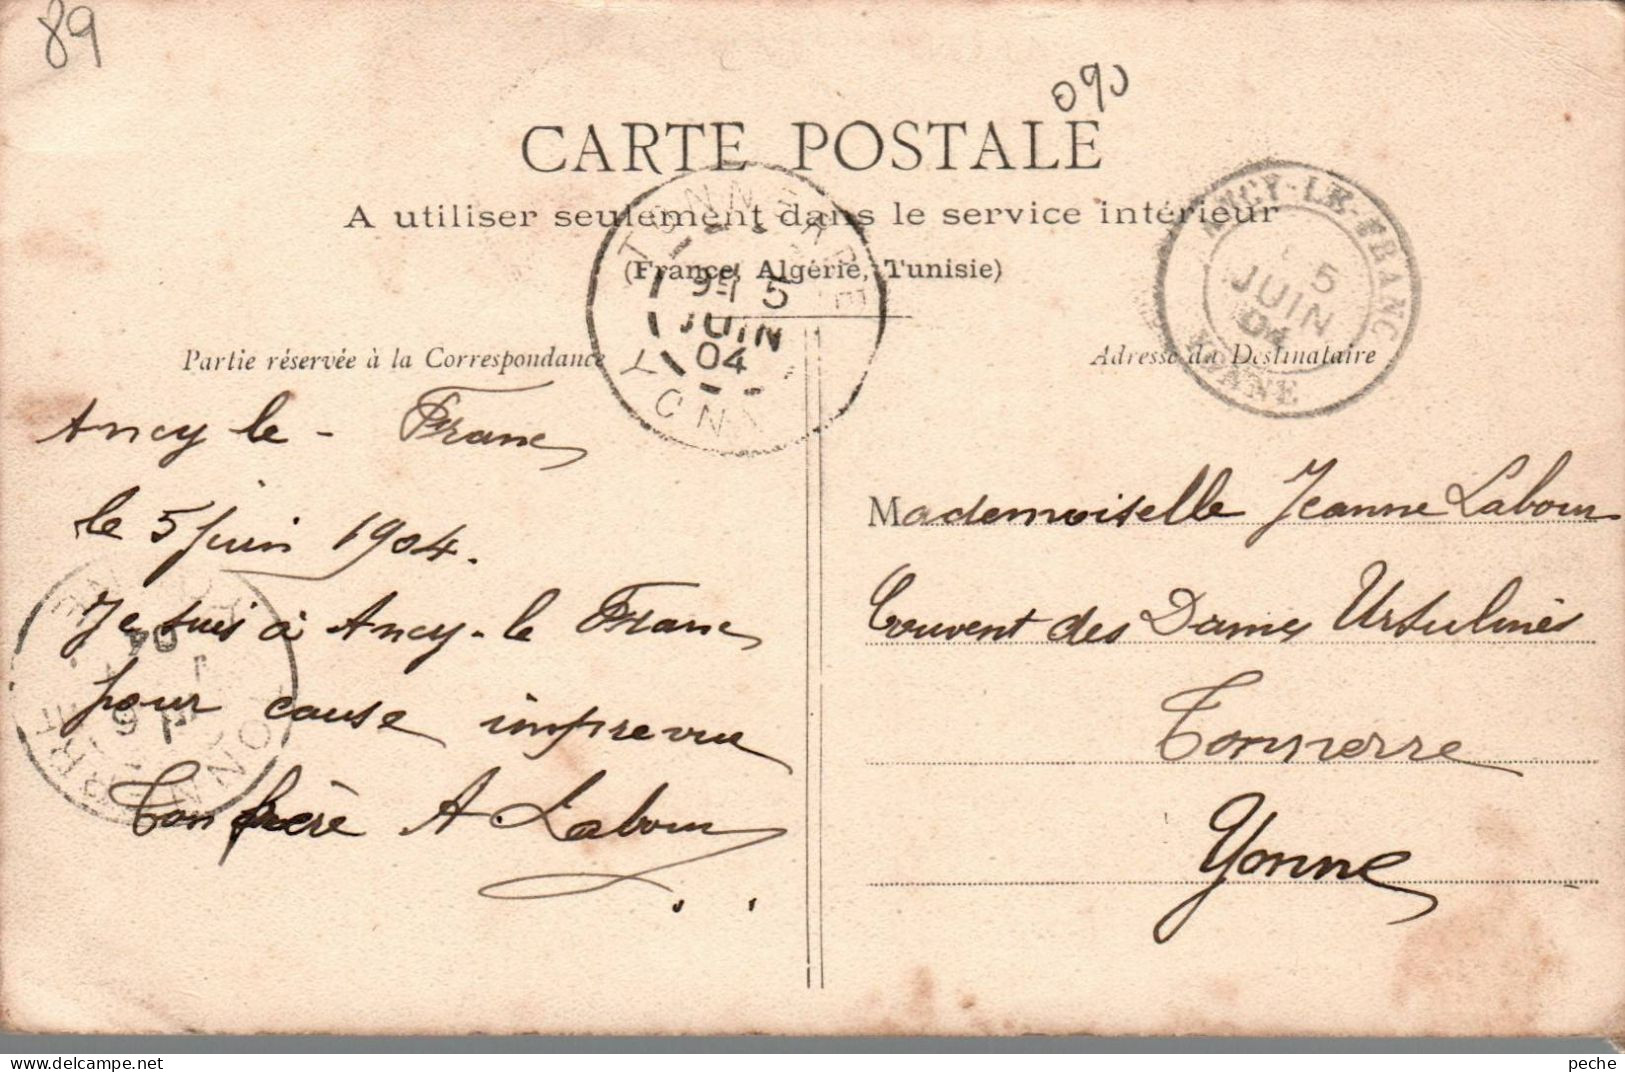 89
090
CARTE POSTALE
A utiliser seulement dans le service intérieur
(France, Algérie, Tunisie)
TONNERRE
5
JUIN
04
YONNE
ANCY-LE-FRANC
5
JUIN
04
YONNE
Partie réservée à la Correspondance
Ancy le - Franc
le 5 juin 1904.
Je suis à Ancy-le Franc
pour cause imprevue
Ton frère A. Labour
Adresse du Destinataire
Mademoiselle Jeanne Labour
Couvent des Dames Ursulines
Tonnerre
Yonne
peche